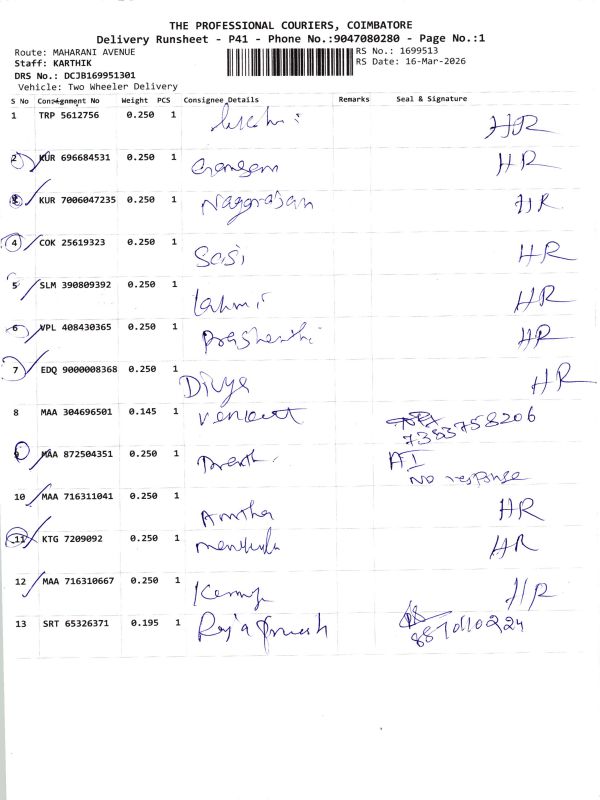 THE PROFESSIONAL COURIERS, COIMBATORE
Delivery Runsheet - P41 - Phone No.:9047080280 - Page No.:1
Route: MAHARANI AVENUE
Staff: KARTHIK
DRS No.: DCJB169951301
Vehicle: Two Wheeler Delivery
RS No.: 1699513
RS Date: 16-Mar-2026
S No Consignment No Weight PCS Consignee Details Remarks Seal & Signature
1 TRP 5612756 0.250 1 HR
2 KUR 696684531 0.250 1 Ganesan HR
3 KUR 7006047235 0.250 1 Nagarajan HR
4 COK 25619323 0.250 1 Sasi HR
5 SLM 390809392 0.250 1 HR
6 VPL 408430365 0.250 1 HR
7 EDQ 9000008368 0.250 1 Divya HR
8 MAA 304696501 0.145 1
7383758206
9 MAA 872504351 0.250 1 AI
No response
10 MAA 716311041 0.250 1 HR
11 KTG 7209092 0.250 1 HR
12 MAA 716310667 0.250 1 HR
13 SRT 65326371 0.195 1